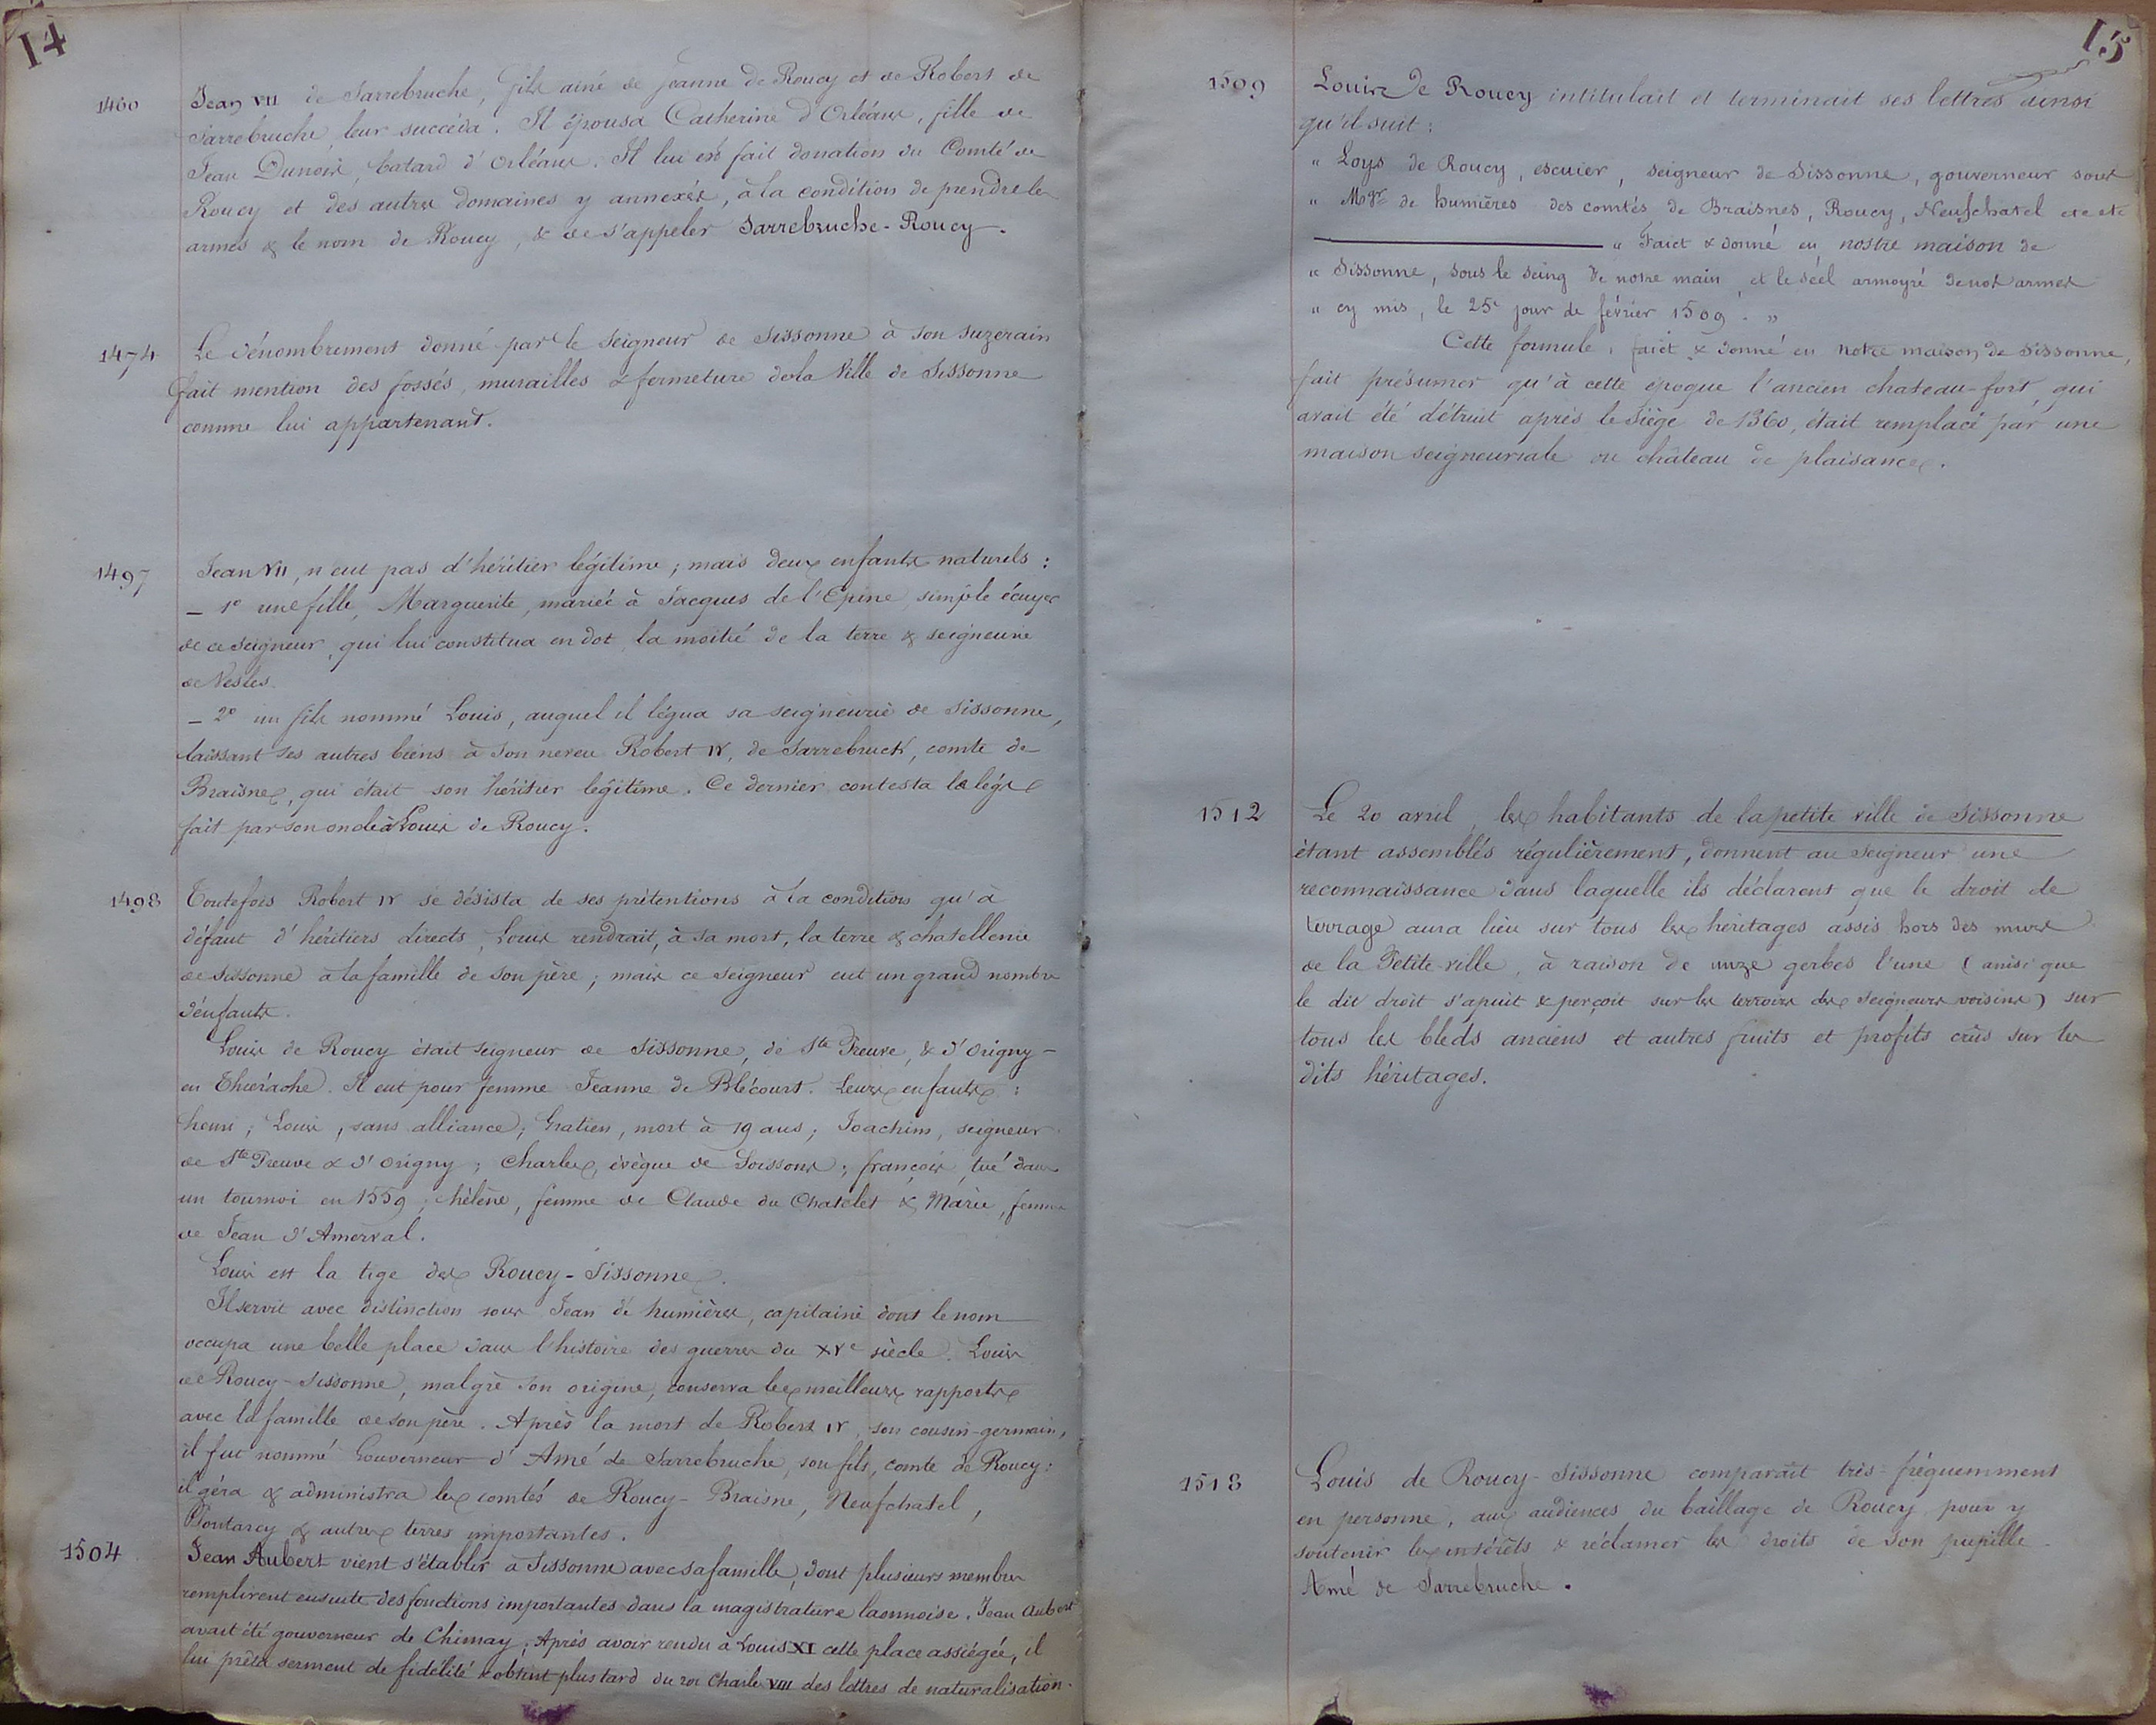 14
1460 Jean VII de Sarrebruche, fils ainé de Jeanne de Roucy et de Robert de
Sarrebruche, leur succéda. Il épousa Catherine d'Orléans, fille de
Jean Dunois, batard d'Orléans. Il lui est fait donation du Comté de
Roucy et des autres domaines y annexés, à la condition de prendre les
armes & le nom de Roucy, & de s'appeler Sarrebruche-Roucy.
1474 Le dénombrement donné par le Seigneur de Sissonne à son Suzerain
fait mention des fossés, murailles & fermeture de la Ville de Sissonne
comme lui appartenant.
1497 Jean VII, n'eut pas d'héritier légitime; mais deux enfants naturels:
_ 1° une fille, Marguerite, mariée à Jacques de l'Epine simple écuyer
de ce Seigneur, qui lui constitua en dot, la moitié de la terre & seigneurie
de Nesles.
_ 2° un fils nommé Louis, auquel il légua sa seigneurie de Sissonne,
laissant ses autres biens à son neveu Robert IV, de Sarrebruck, comte de
Braisne, qui était son héritier légitime. Ce dernier contesta le légs
fait par son oncle à Louis de Roucy.
1498 Toutefois Robert IV se désista de ses prétentions à la condition qu'à
défaut d'héritiers directs, Louis rendrait, à sa mort, la terre & chatellenie
de Sissonne à la famille de son père; mais ce Seigneur eut un grand nombre
d'enfants.
Louis de Roucy était Seigneur de Sissonne, de Ste Preuve, & d'Origny-
en Thiérache. Il eut pour femme Jeanne de Blécourt. Leurs enfants:
henri; Louis, sans alliance; Gratien, mort à 19 ans; Joachim, seigneur
de Ste Preuve & d'Origny; Charles, évêque de Soissons; françois, tué dans
un tournoi en 1559; hélène, femme de Claude du Chatelet & Marie, femme
de Jean d'Amerval.
Louis est la tige des Roucy-Sissonne.
Il servit avec distinction sous Jean de humières, capitaine dont le nom
occupa une belle place dans l'histoire des guerres du XVe siècle. Louis
de Roucy-Sissonne, malgré son origine, conserva les meilleurs rapports
avec la famille de son père. Après la mort de Robert IV, son cousin-germain,
il fut nommé Gouverneur d'Amé de Sarrebruche, son fils, comte de Roucy:
il géra & administra les comtés de Roucy-Braisne, Neufchatel,
Pontarcy & autres terres importantes.
1504 Jean Aubert vient s'établir à Sissonne avec sa famille, dont plusieurs membres
remplirent ensuite des fonctions importantes dans la magistrature laonnoise. Jean Aubert
avait été gouverneur de Chimay. Après avoir rendu à Louis XI cette place assiégée, il
lui prêta serment de fidélité & obtint plus tard du roi Charles VIII des lettres de naturalisation.
15
1509 Louis de Roucy intitulait et terminait ses lettres ainsi
qu'il suit:
" Loys de Roucy, escuier, seigneur de Sissonne, gouverneur sous
" Mgr de humières des comtés de Braisnes, Roucy, Neufchatel etc etc
" Faict & donné en nostre maison de
" Sissonne, sous le seing de notre main, et le séel armoyré de nos armes
" cy mis, le 25e jour de février 1509. "
Cette formule, faict & donné en notre maison de Sissonne,
fait présumer qu'à cette époque l'ancien chateau-fort, qui
avait été détruit après le Siège de 1360, était remplacé par une
maison seigneuriale ou château de plaisance.
1512 Le 20 avril, les habitants de la petite ville de Sissonne
étant assemblés régulièrement, donnent au Seigneur une
reconnaissance dans laquelle ils déclarent que le droit de
terrage aura lieu sur tous les héritages assis hors des murs
de la Petite-ville, à raison de unze gerbes l'une (ainsi que
le dit droit s'apuit & perçoit sur les terroirs des Seigneurs voisins) sur
tous les bleds anciens et autres fruits et profits crûs sur les
dits héritages.
1518 Louis de Roucy-Sissonne comparaît très-fréquemment
en personne, aux audiences du baillage de Roucy pour y
soutenir les intérêts & réclamer les droits de son pupille
Amé de Sarrebruche.